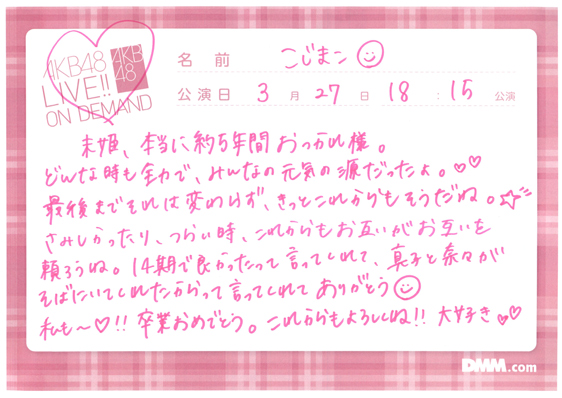 AKB48
LIVE!!
ON DEMAND
AKB
48
名前 こじまこ
公演日 3月27日 18:15公演
未姫、本当に約5年間おつかれ様。
どんな時も全力で、みんなの元気の源だったよ。
最後までそれは変わらず、きっとこれからもそうだね。
さみしかったり、つらい時、これからもお互いがお互いを
頼ろうね。14期で良かったって言ってくれて、真子と奈々が
そばにいてくれたからって言ってくれてありがとう
私も〜♡!! 卒業おめでとう。これからもよろしくね!! 大好き
DMM.com